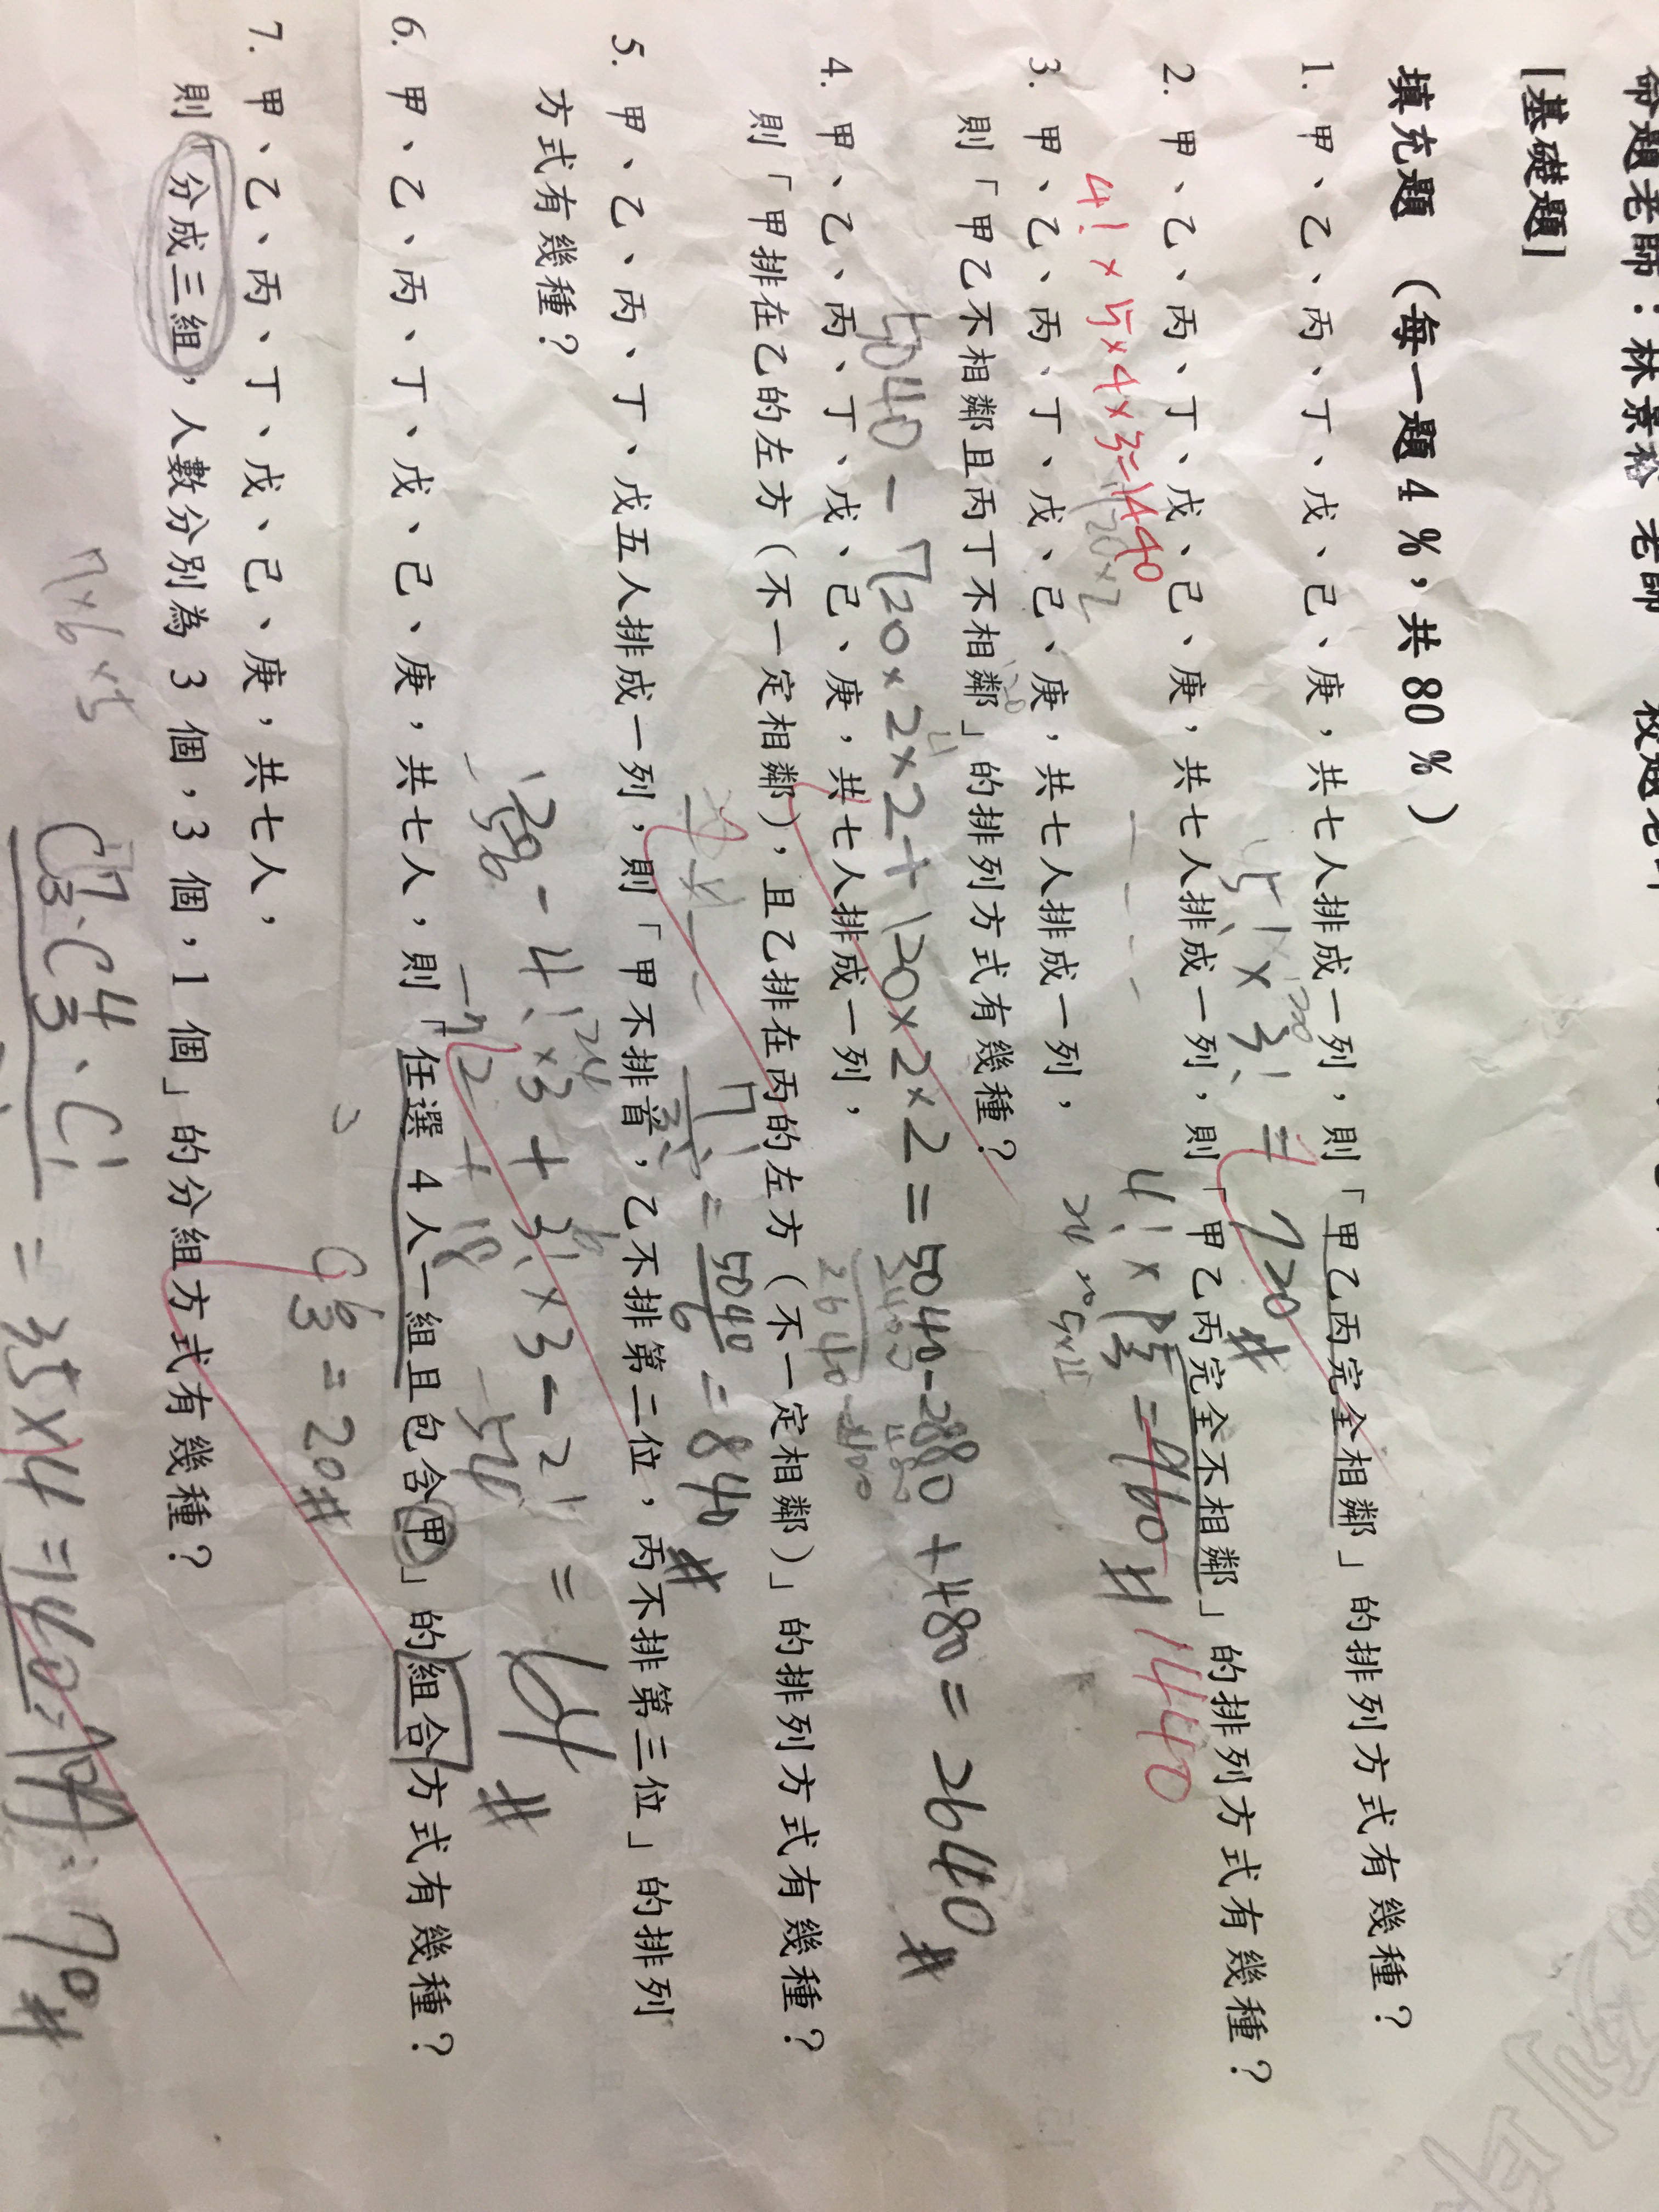 命題老師：林景裕 老師
[基礎題]
填充題 （每一題 4 %，共 80 %）
1. 甲、乙、丙、丁、戊、己、庚，共七人排成一列，則「甲乙丙完全相鄰」的排列方式有幾種？
5! × 3! = 720 #
120
2. 甲、乙、丙、丁、戊、己、庚，共七人排成一列，則「甲乙丙完全不相鄰」的排列方式有幾種？
4! × 5 × 4 × 3 = 1440
4! × P⁵₃ = 960 # 1440
3. 甲、乙、丙、丁、戊、己、庚，共七人排成一列，
則「甲乙不相鄰且丙丁不相鄰」的排列方式有幾種？
5040 - 720 × 2 × 2 + 120 × 2 × 2 = 5040 - 2880 + 480 = 2640 #
4. 甲、乙、丙、丁、戊、己、庚，共七人排成一列，
則「甲排在乙的左方（不一定相鄰），且乙排在丙的左方（不一定相鄰）」的排列方式有幾種？
7!/3! = 5040/6 = 840 #
5. 甲、乙、丙、丁、戊五人排成一列，則「甲不排首，乙不排第二位，丙不排第三位」的排列
方式有幾種？
- 4! × 3 + 3! × 3 - 2! = 64 #
24
6
- 72 + 18
54
6. 甲、乙、丙、丁、戊、己、庚，共七人，則「任選 4 人一組且包含甲」的組合方式有幾種？
C⁶₃ = 20 #
7. 甲、乙、丙、丁、戊、己、庚，共七人，
則「分成三組，人數分別為 3 個，3 個，1 個」的分組方式有幾種？
7×6×5
C⁷₃ · C⁴₃ · C¹₁ = 35 × 4 = 140
70 #